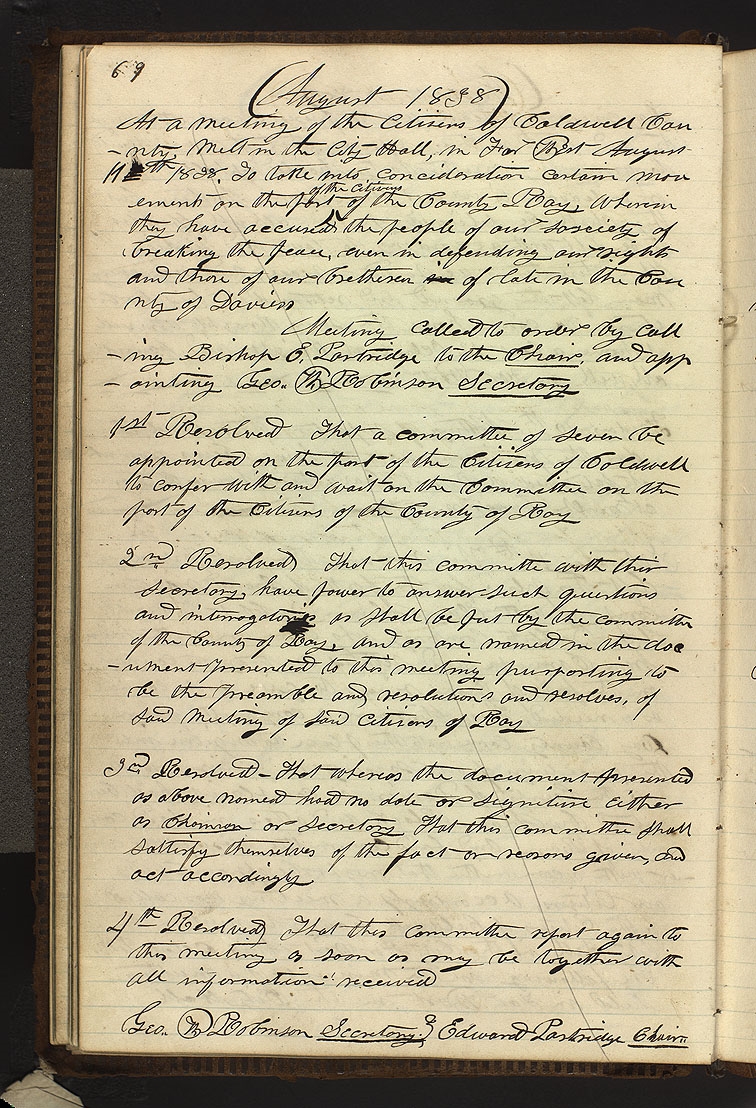 69
(August 1838)
At a meeting of the Citizens of Caldwell Cou
-nty, Mett in the City Hall, in Far West August
11th 1838. To take into concideration certain mov
of the Citizens
ement on the part of the County Ray, Wherein
they have accused the people of our society of
breaking the peace, even in defending our rights
and those of our bretheren in of late in the Cou
nty of Daviess
Meeting called to order by call
-ing Bishop E. Partridge to the Chair, and app
-ointing Geo. W. Robinson Secretary
1st Resolved That a committee of seven be
appointed on the part of the Citizens of Caldwell
to confer with and wait on the Committee on the
part of the Citizens of the County of Ray
2nd Resolved That this committe with their
secretary, have power to answer such questions
and interrogatories as shall be put by the committe
of the County of Ray, and as are named in the doc
-ument presented to this meeting purporting to
be the preamble and resolutions and resolves, of
said Meeting of said Citizens of Ray
3rd Resolved- That whereas the document presented
as above named had no date or signiture either
as Chairman or Secretary That this committe shall
sattisfy themselves of the fact or reasons given, and
act accordingly
4th Resolved That this committe report again to
this meeting as soon as may be together with
all information received
Geo. W. Robinson Secretary } Edward Partridge Chair